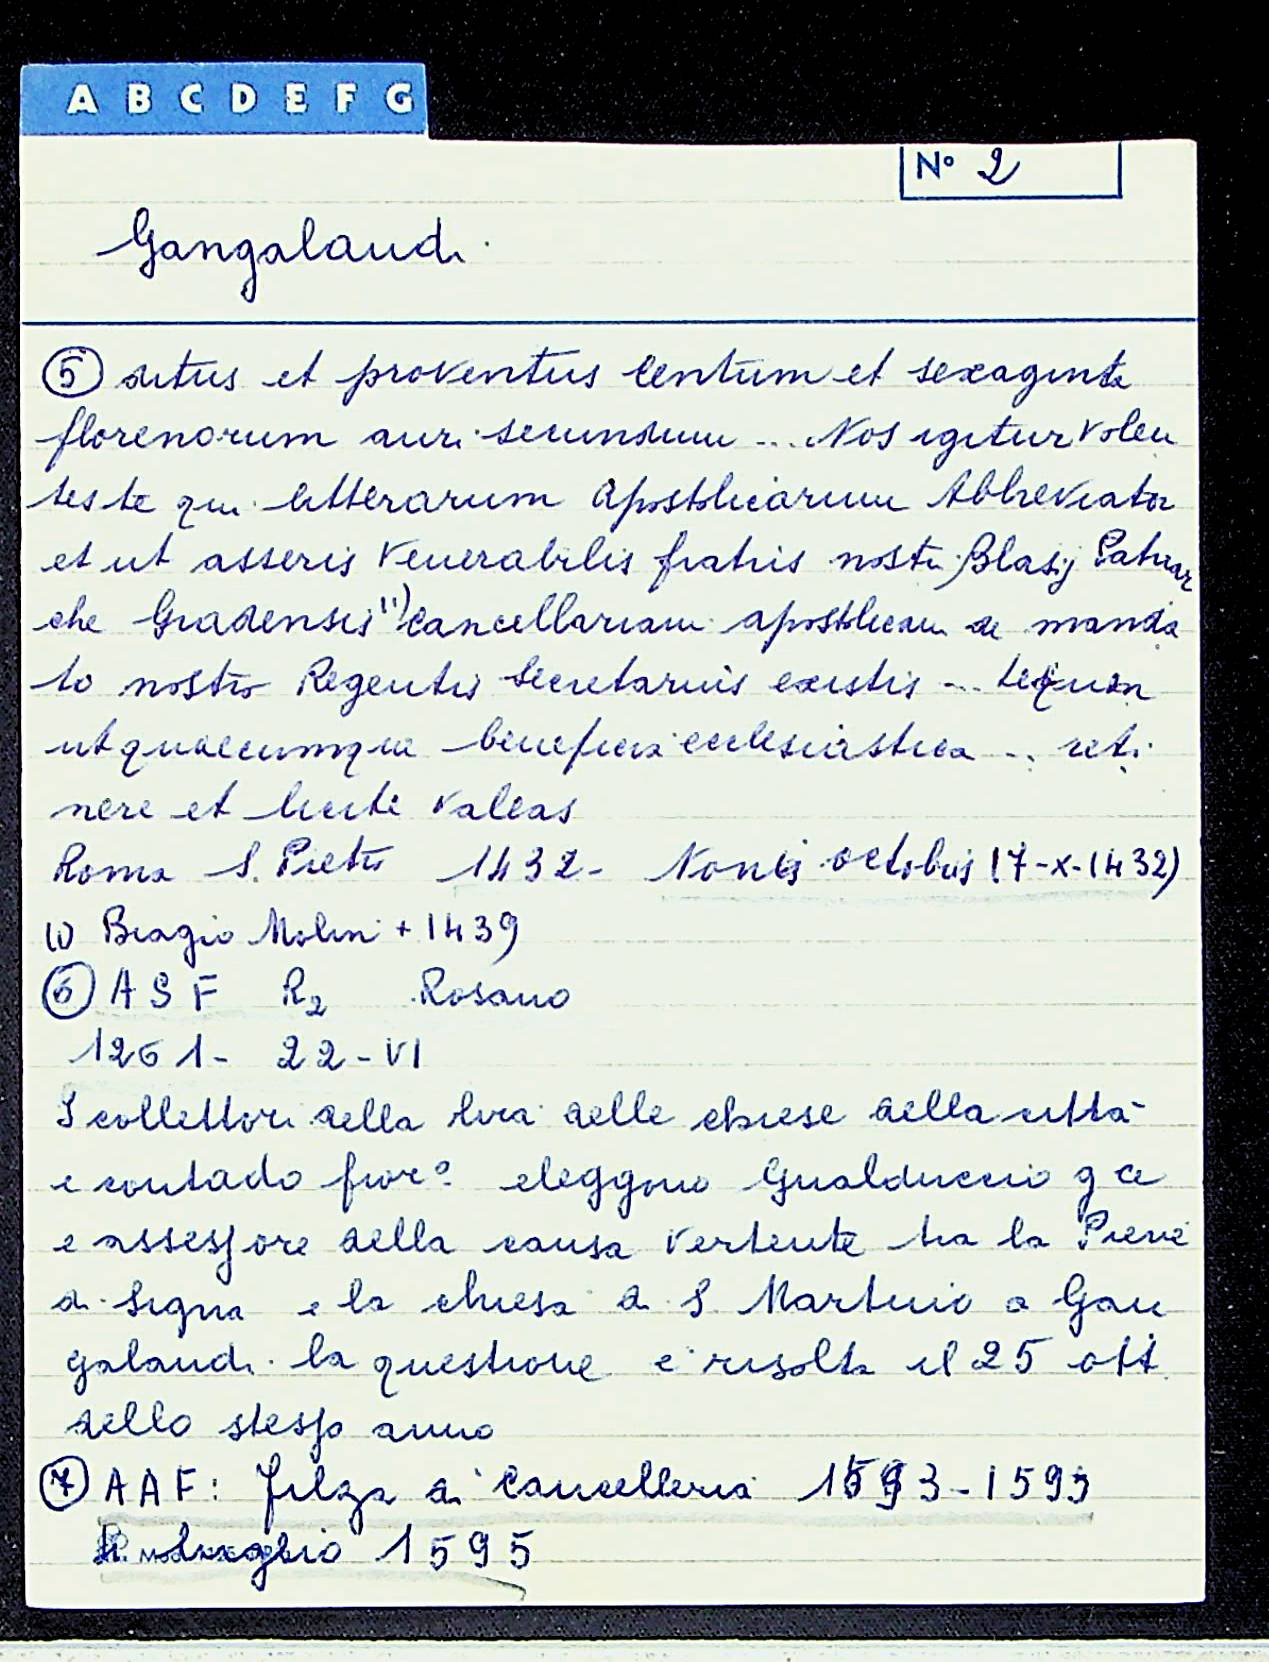 A B C D E F G
N° 2
Gangalandi
5 ditus et proventus centum et sexaginta
florenorum auri secundum ... Nos igitur volen
tes te qui litterarum apostolicarum Abbreviator
et ut asseris venerabilis fratris nostri Blasij Patriar
che Gradensis 1) cancellariam apostolicam de manda
to nostro Regentis secretarius existis ... tecum
ut quaecumque beneficia ecclesiastica ... reti
nere et licite valeas
Roma S. Pietro 1432 - Nonis octobris (7-X-1432)
(1) Biagio Molin + 1439
6 ASF R2 Rosano
1261 - 22 - VI
I collettori della lira delle chiese della città
e contado fior° eleggono Gualduccio g ce
e assessore della causa vertente tra la Pieve
di Signa e la chiesa di S. Martino a Gan
galandi. la questione e' risolta il 25 ott
dello stesso anno
7 AAF: Filza di Cancelleria 1593-1595
luglio 1595